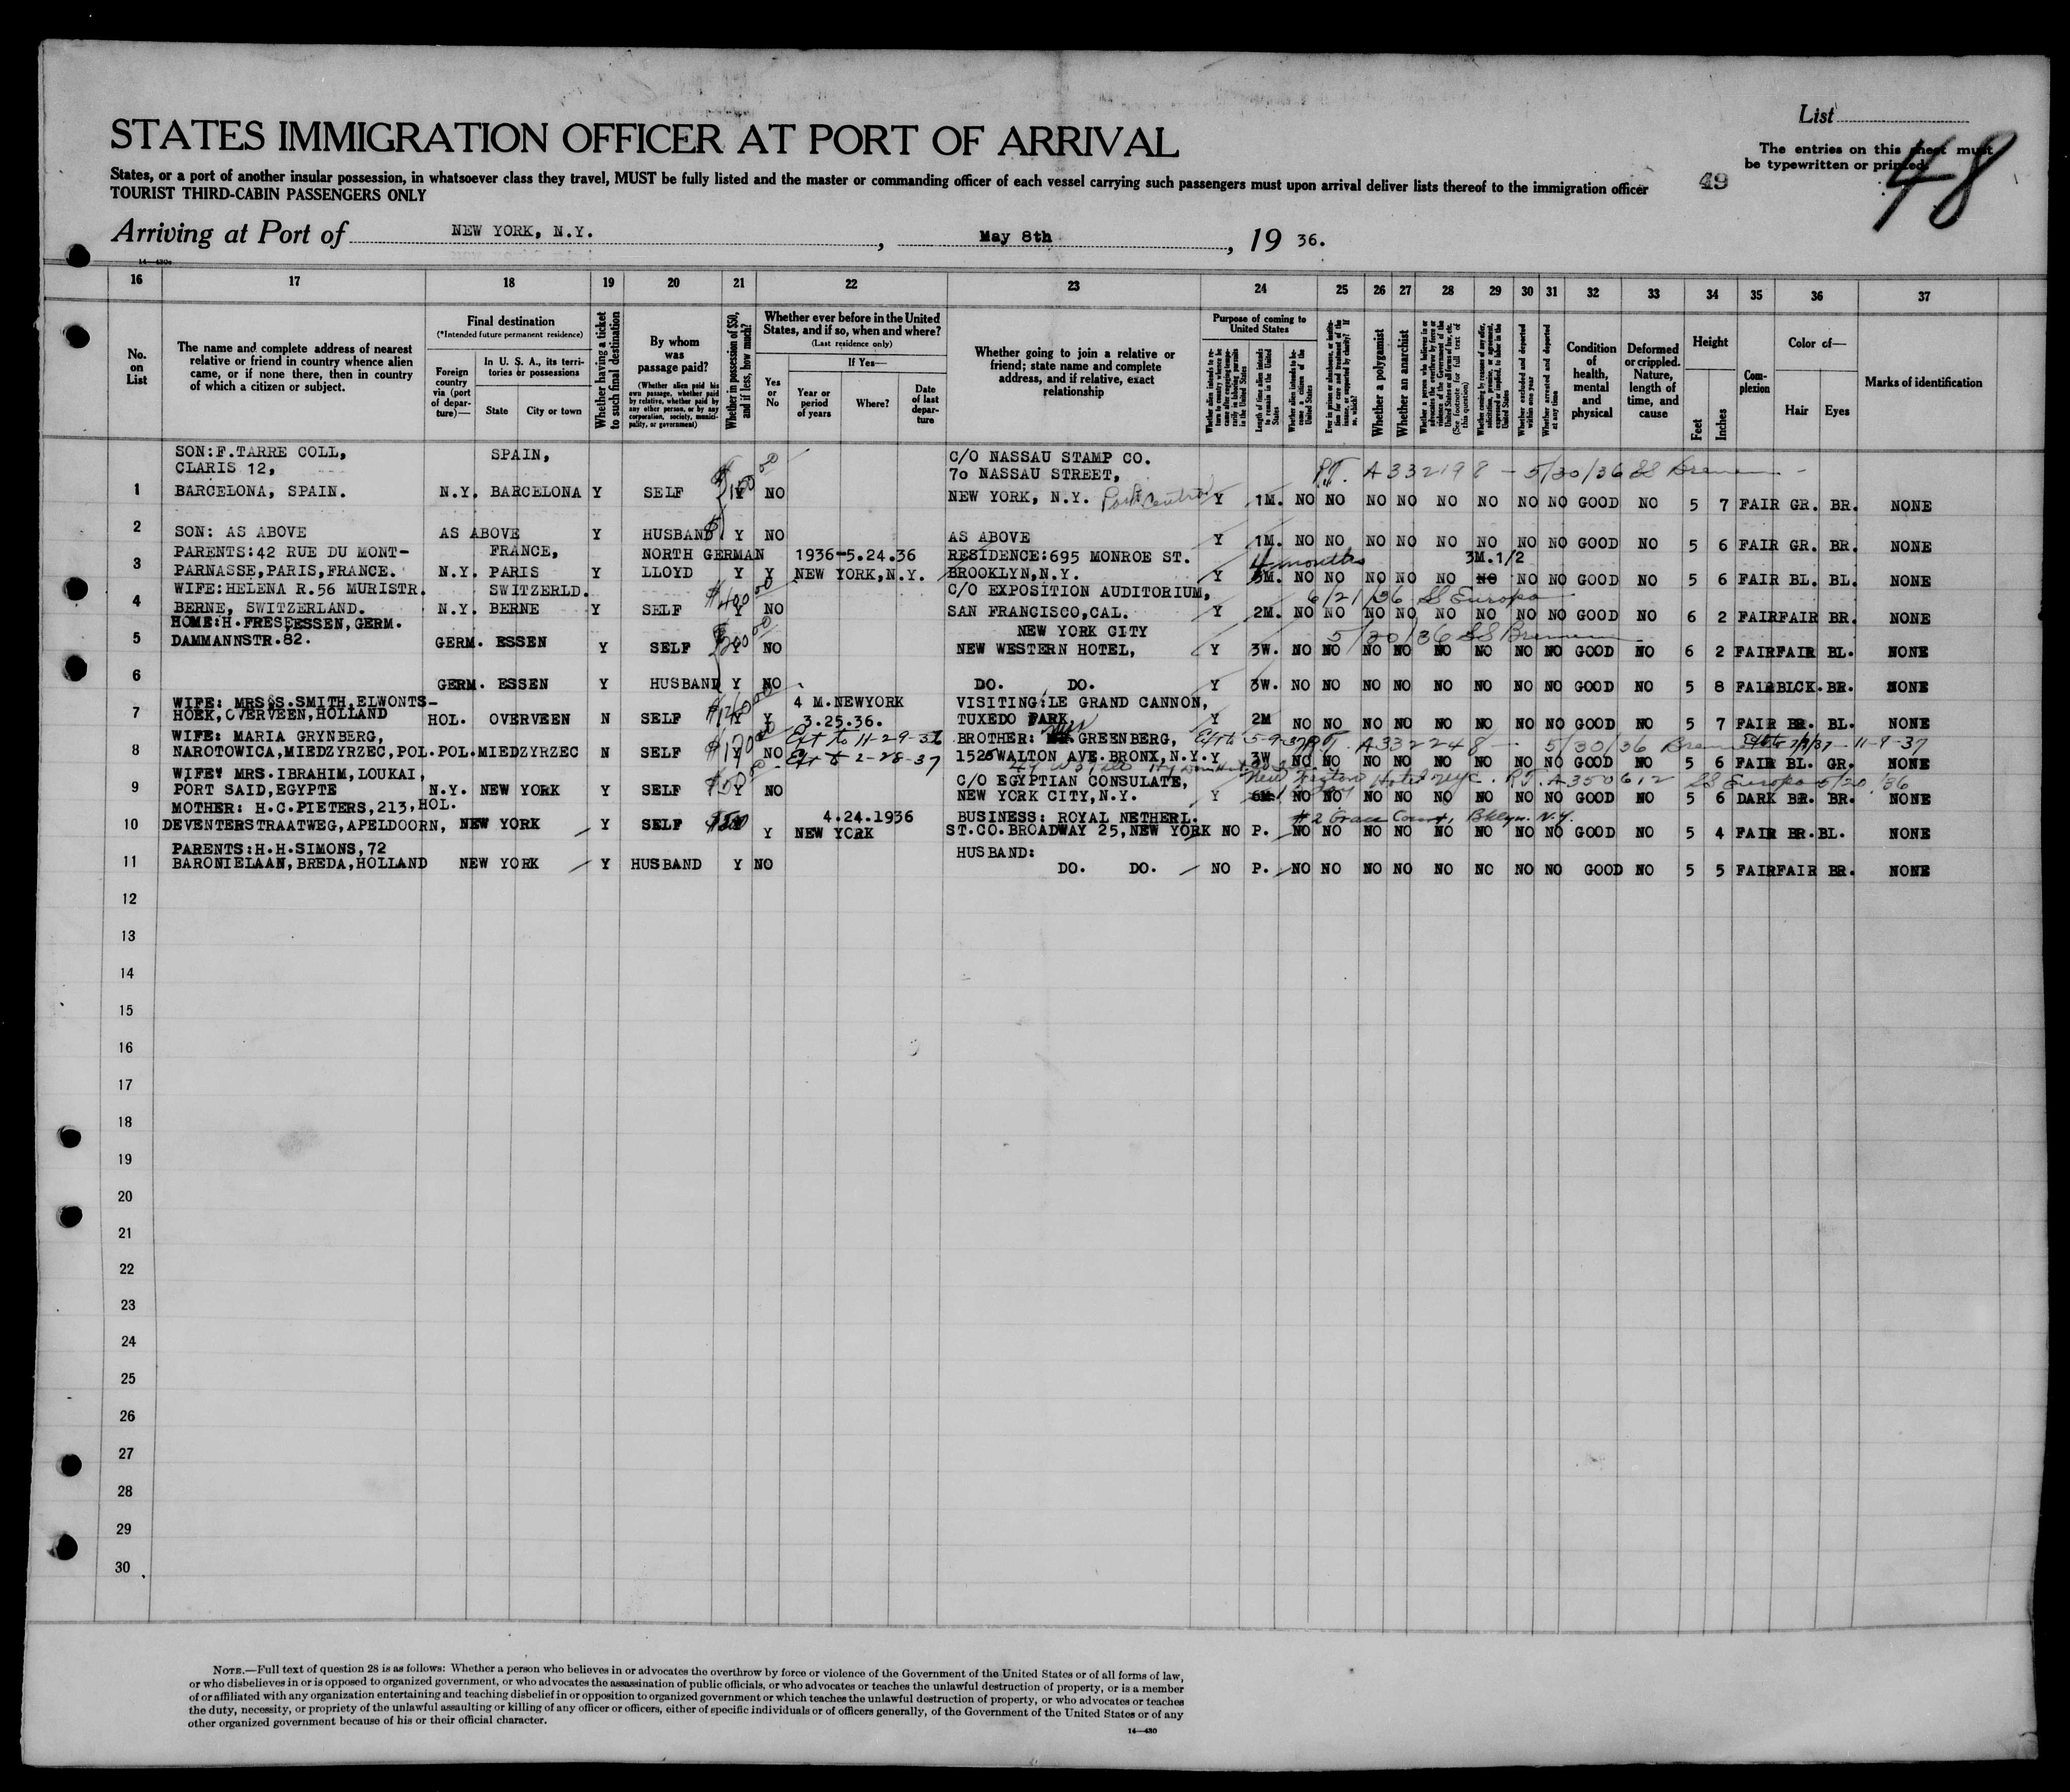 List
STATES IMMIGRATION OFFICER AT PORT OF ARRIVAL
The entries on this sheet must
be typewritten or printed.
48
49
States, or a port of another insular possession, in whatsoever class they travel, MUST be fully listed and the master or commanding officer of each vessel carrying such passengers must upon arrival deliver lists thereof to the immigration officer
TOURIST THIRD-CABIN PASSENGERS ONLY
Arriving at Port of NEW YORK, N.Y. , May 8th , 19 36.
16 17 18 19 20 21 22 23 24 25 26 27 28 29 30 31 32 33 34 35 36 37
No. on List
The name and complete address of nearest relative or friend in country whence alien came, or if none there, then in country of which a citizen or subject.
Final destination
(*Intended future permanent residence)
Foreign country via (port of departure)—
In U. S. A., its territories or possessions
State
City or town
Whether having a ticket to such final destination
By whom was passage paid?
(Whether alien paid his own passage, whether paid by relative, whether paid by any other person, or by any corporation, society, municipality, or government)
Whether in possession of $50, and if less, how much?
Whether ever before in the United States, and if so, when and where?
(Last residence only)
Yes or No
If Yes—
Year or period of years
Where?
Date of last departure
Whether going to join a relative or friend; state name and complete address, and if relative, exact relationship
Purpose of coming to United States
Length of time alien intends to remain in the United States
Whether a polygamist
Whether an anarchist
Whether excluded and deported within one year
Whether arrested and deported at any time
Condition of health, mental and physical
Deformed or crippled. Nature, length of time, and cause
Height
Feet
Inches
Complexion
Color of—
Hair
Eyes
Marks of identification
SON:F.TARRE COLL, SPAIN, C/O NASSAU STAMP CO.
CLARIS 12, 7o NASSAU STREET, A332198 - 5/30/36 SS Bremen
1 BARCELONA, SPAIN. N.Y. BARCELONA Y SELF Y NO NEW YORK, N.Y. Park Central Y 1M. NO NO NO NO NO NO NO NO GOOD NO 5 7 FAIR GR. BR. NONE
2 SON: AS ABOVE AS ABOVE Y HUSBAND Y NO AS ABOVE Y 1M. NO NO NO NO NO NO NO NO GOOD NO 5 6 FAIR GR. BR. NONE
PARENTS:42 RUE DU MONT- FRANCE, NORTH GERMAN 1936-5.24.36 RESIDENCE:695 MONROE ST. 4 months 3M.1/2
3 PARNASSE,PARIS,FRANCE. N.Y. PARIS Y LLOYD Y Y NEW YORK,N.Y. BROOKLYN,N.Y. Y NO NO NO NO NO NO NO NO GOOD NO 5 6 FAIR BL. BL. NONE
WIFE:HELENA R.56 MURISTR. SWITZERLD. $400 00 C/O EXPOSITION AUDITORIUM, 6/21/36 SS Europa
4 BERNE, SWITZERLAND. N.Y. BERNE Y SELF Y NO SAN FRANCISCO,CAL. Y 2M. NO NO NO NO NO NO NO NO GOOD NO 6 2 FAIR FAIR BR. NONE
HOME:H.FRESE,ESSEN,GERM. NEW YORK CITY 5/30/36 SS Bremen
5 DAMMANNSTR.82. GERM. ESSEN Y SELF Y NO NEW WESTERN HOTEL, Y 3W. NO NO NO NO NO NO NO NO GOOD NO 6 2 FAIR FAIR BL. NONE
6 GERM. ESSEN Y HUSBAND Y NO DO. DO. Y 3W. NO NO NO NO NO NO NO NO GOOD NO 5 8 FAIR BLCK. BR. NONE
WIFE: MRS S.SMITH,ELWONTS- 4 M.NEWYORK VISITING:LE GRAND CANNON,
7 HOEK,OVERVEEN,HOLLAND HOL. OVERVEEN N SELF Y Y 3.25.36. TUXEDO PARK, Y 2M NO NO NO NO NO NO NO NO GOOD NO 5 7 FAIR BR. BL. NONE
WIFE: MARIA GRYNBERG, Ext to 11-29-36 BROTHER: GREENBERG, 5-9-37 A332248 - 5/30/36 11-9-37
8 NAROTOWICA,MIEDZYRZEC,POL. POL.MIEDZYRZEC N SELF Y NO Ext to 2-28-37 1525 WALTON AVE.BRONX,N.Y. Y 3W NO NO NO NO NO NO NO NO GOOD NO 5 6 FAIR BL. GR. NONE
WIFE: MRS.IBRAHIM,LOUKAI, C/O EGYPTIAN CONSULATE, Hotel NYC. A350612 SS Europa 5/20/36
9 PORT SAID,EGYPTE N.Y. NEW YORK Y SELF Y NO NEW YORK CITY,N.Y. Y 6M NO NO NO NO NO NO NO NO GOOD NO 5 6 DARK BR. BR. NONE
MOTHER: H.C.PIETERS,213,HOL. 4.24.1936 BUSINESS: ROYAL NETHERL. #2 Grace Court, Bklyn. N.Y.
10 DEVENTERSTRAATWEG,APELDOORN, NEW YORK Y SELF Y NEW YORK ST.CO.BROADWAY 25,NEW YORK NO P. NO NO NO NO NO NO NO NO GOOD NO 5 4 FAIR BR.BL. NONE
PARENTS:H.H.SIMONS,72 HUSBAND:
11 BARONIELAAN,BREDA,HOLLAND NEW YORK Y HUSBAND Y NO DO. DO. NO P. NO NO NO NO NO NO NO NO GOOD NO 5 5 FAIR FAIR BR. NONE
12
13
14
15
16
17
18
19
20
21
22
23
24
25
26
27
28
29
30
NOTE.—Full text of question 28 is as follows: Whether a person who believes in or advocates the overthrow by force or violence of the Government of the United States or of all forms of law,
or who disbelieves in or is opposed to organized government, or who advocates the assassination of public officials, or who advocates or teaches the unlawful destruction of property, or is a member
of or affiliated with any organization entertaining and teaching disbelief in or opposition to organized government or which teaches the unlawful destruction of property, or who advocates or teaches
the duty, necessity, or propriety of the unlawful assaulting or killing of any officer or officers, either of specific individuals or of officers generally, of the Government of the United States or of any
other organized government because of his or their official character.
14—430